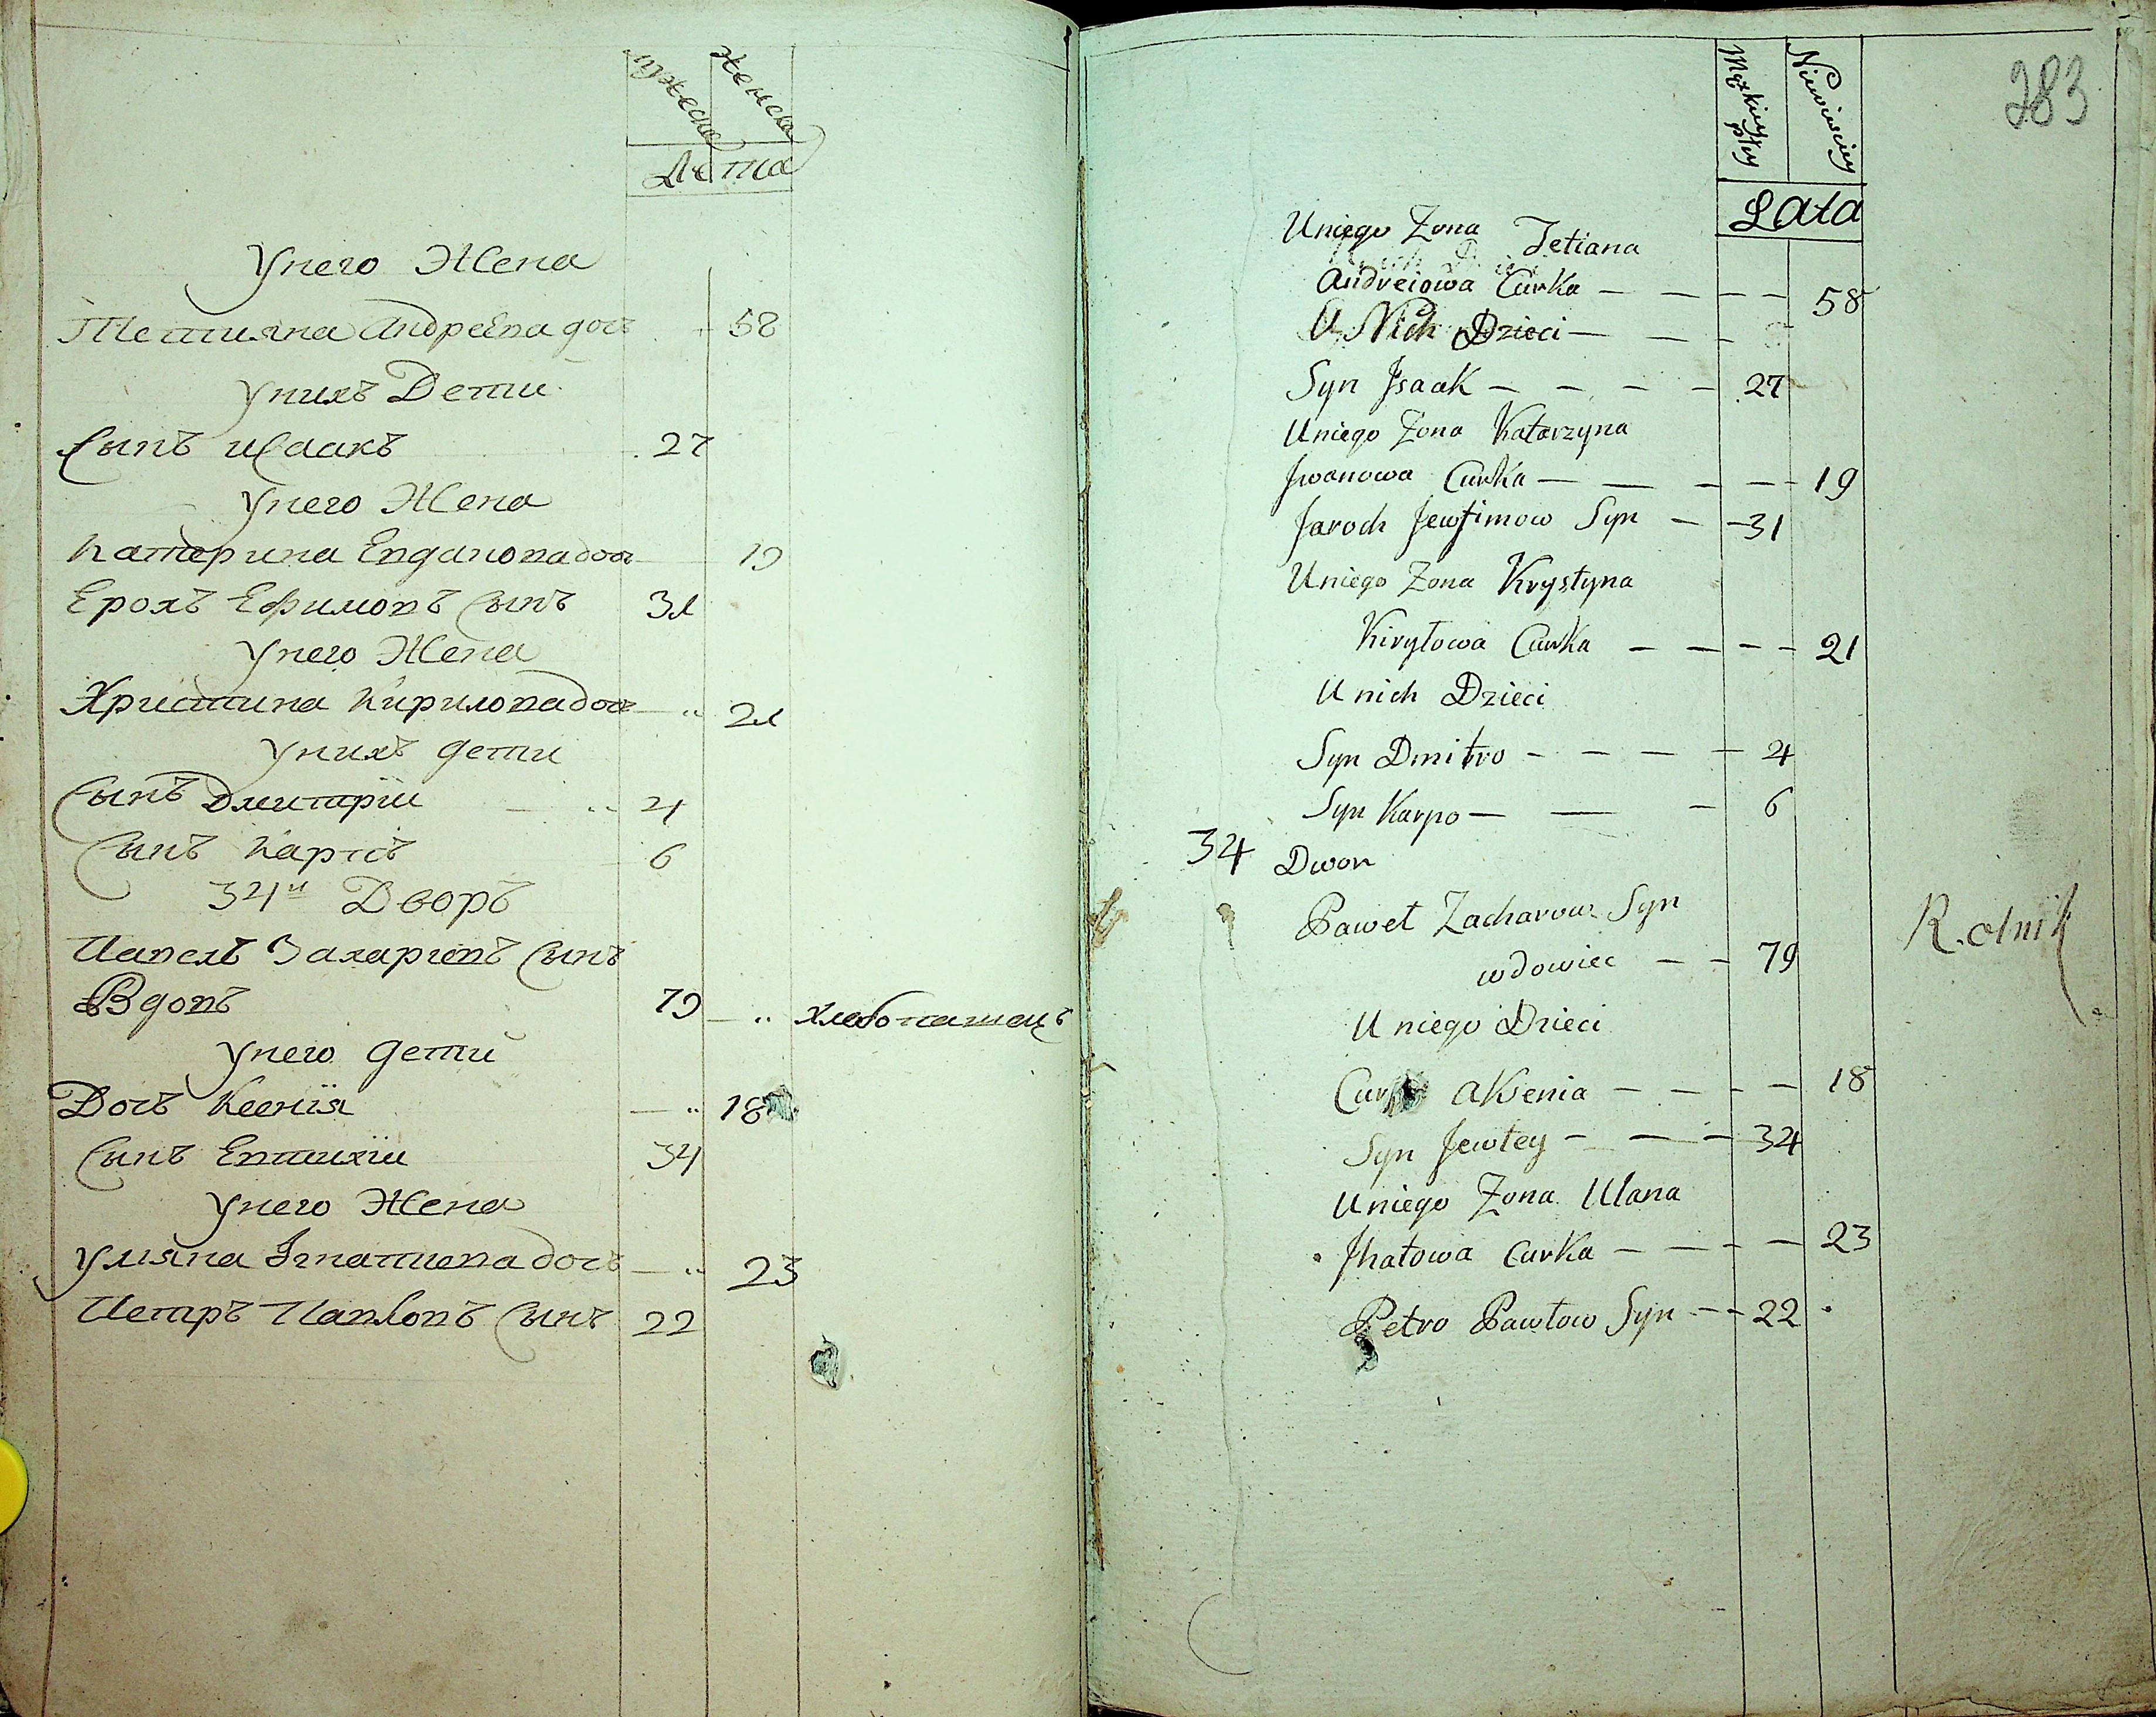 мужеска женска
Лета
Унего Жена
Тетияна Андреева доч 58
Унихъ Дети
Сынъ исаакъ 27
Унего Жена
Катерина доч 19
Ерохъ Ефимовъ Сынъ 31
Унего Жена
Христина Кирилова доч 21
Унихъ дети
Сынъ Дмитрiи 4
Сынъ Карпъ 6
34й Дворъ
Павелъ Захаривъ Сынъ
Вдовъ 79 Хлебопашецъ
Унего дети
Дочъ Ксенiя 18
Сынъ Евтихiи 34
Унего Жена
Уляна Игнатиева дочъ 23
Петръ Павловъ Сынъ 22
283
Męzkiey płcy Niewiesciey
Lata
Uniego Zona Tetiana
Andreiowa Curka — — — — 58
U Nich Dzieci — — -
Syn Jsaak — — — — 27
Uniego Zona Katarzyna
Jwanowa Curka — — — — 19
Jaroch Jewfimow Syn — — 31
Uniego Zona Krystyna
Kiryłowa Curka — — — — 21
U nich Dzieci
Syn Dmitro — — — — 4
Syn Karpo — — — 6
34 Dwor
Paweł Zacharow Syn
wdowiec — — 79 Rolnik
U niego Dzieci
Curka Aksenia — — — — 18
Syn Jewtey — — — 34
Uniego Zona Ulana
Jhatowa Curka — — — — 23
Petro Pawłow Syn — — 22